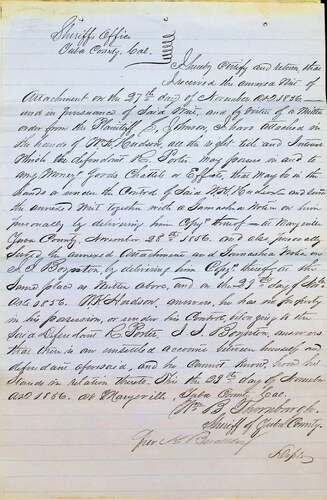 Sheriffs Office
Yuba County, Cal.
I hereby Certify and return that
I received the annexed Writ of
Attachment on the 27th day of November A.D. 1856—
and in pursuance of Said Writ, and by virtue of a Written
order from the Plaintiff J. Johnson, I have attached in
the hands of W. H. Hudson, all the right title and Interest
Which the defendant R. Porter may possess in and to
any Moneys Goods Chattels or Effects, that may be in the
hands or under the Control of Said W. H. Hudson and
the annexed Writ together with a Garnashee Notice on him
personally by delivering him Copys thereof—at Marysville
Yuba County, November 28th 1856. and also personally
Served the annexed Attachment and Garnashee Notice on
J. J. Boynton, by delivering him Copys thereof at the
Same place as Written above, and on the 29th day of
A.D. 1856. W. H. Hudson, answers, he has no property
in his possession, or under his Control belonging to the
Said Defendant R. Porter, J. J. Boynton, answers
that there is an unsettled account between himself and
defendant aforesaid, and he Cannot Know, how he
Stands in relation thereto. this the 29th day of November
A.D. 1856. at Marysville Yuba County Cal,
Wm B. Thornburgh.
Sheriff of Yuba County.
Per